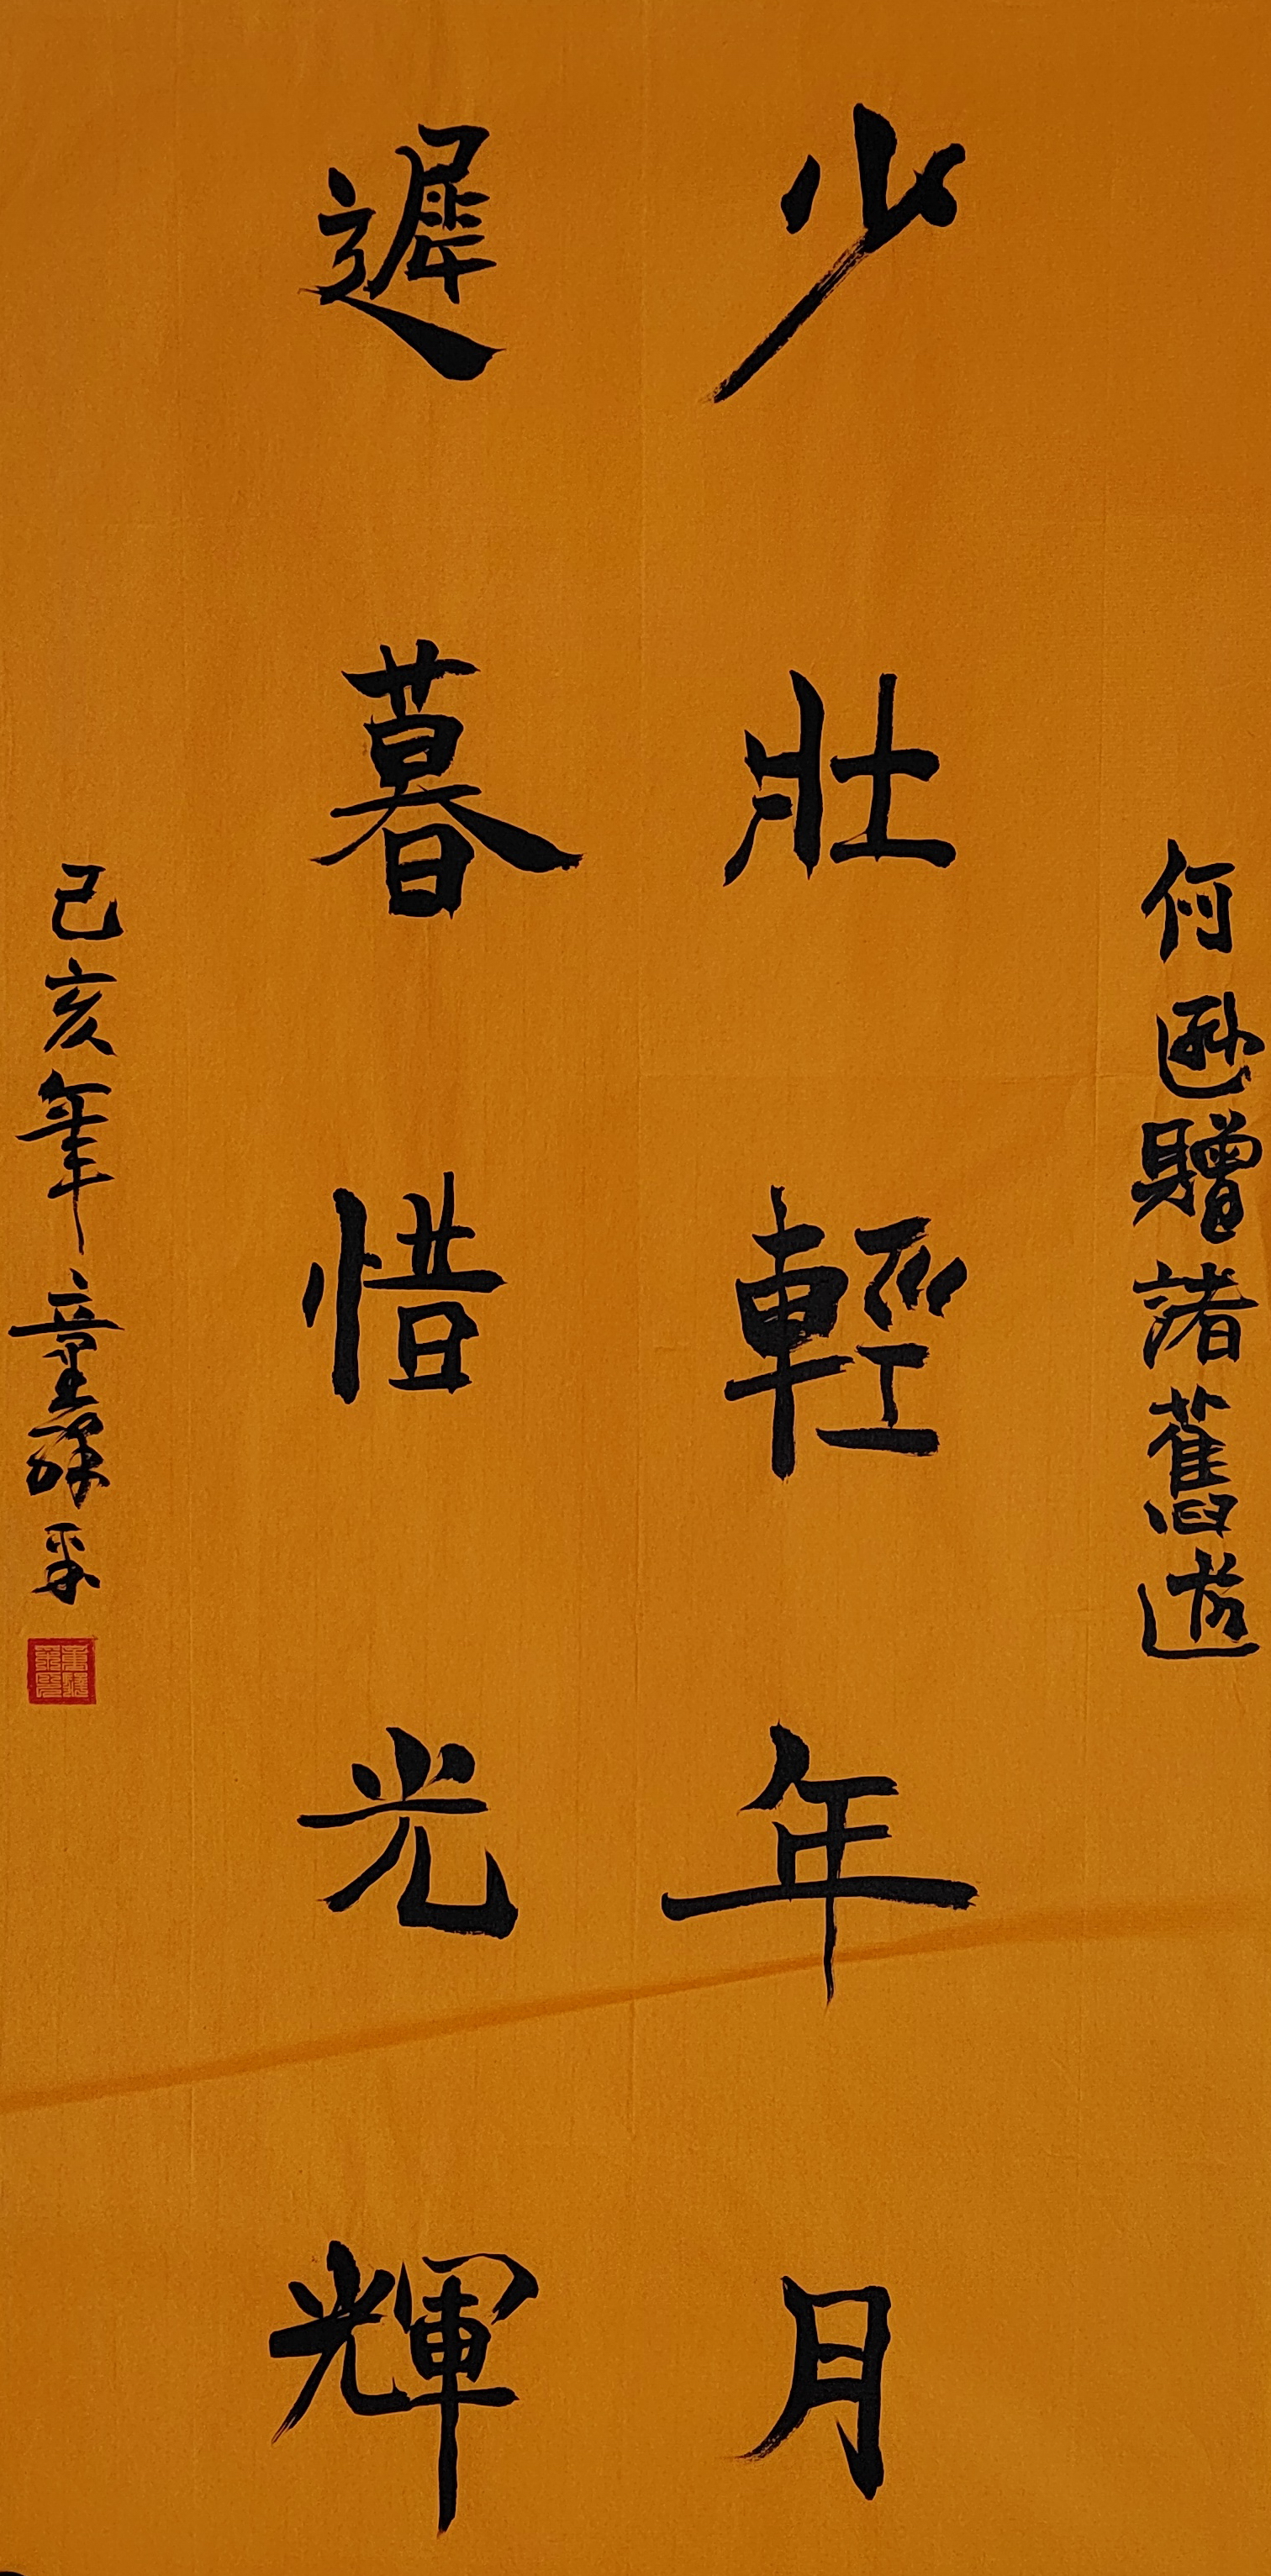 何遜贈諸舊遊
少壯輕年月
遲暮惜光輝
己亥年